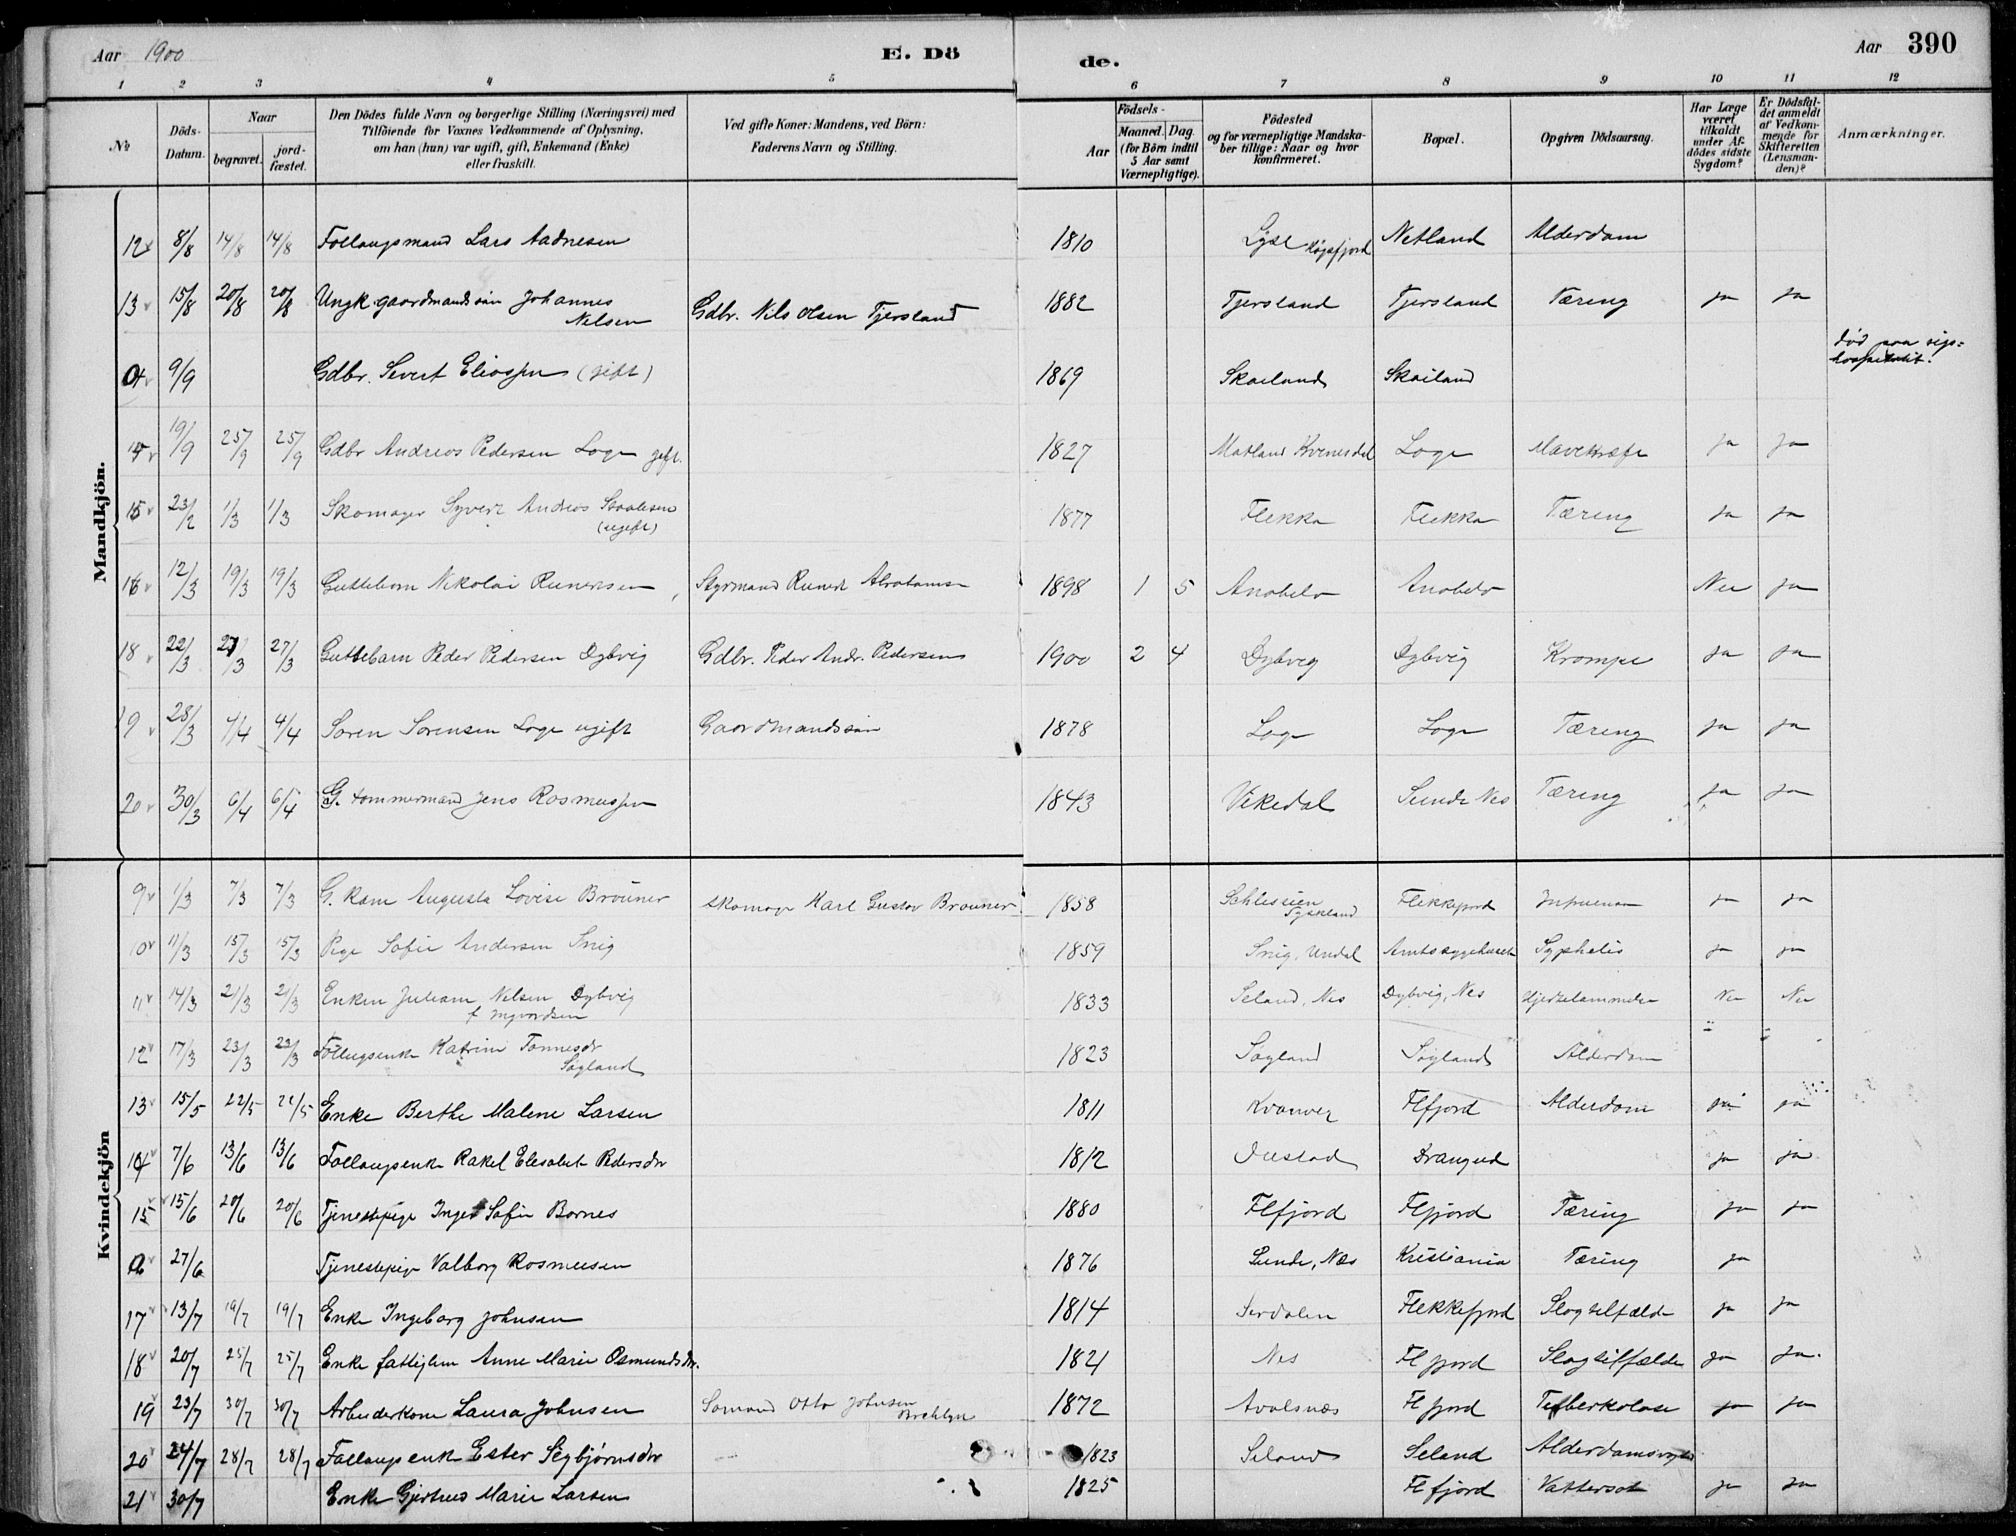 Aar 1900 E. Dö de. Aar 390
1 2 3 4 5 6 7 8 9 10 11 12
№
Döds-Datum.
Naar
begravet.
jord-fæstet.
Den Dödes fulde Navn og borgerlige Stilling (Næringsvei) med
Tilföiende for Voxnes Vedkommende af Oplysning,
om han (hun) var ugift, gift, Enkemand (Enke)
eller fraskilt.
Ved gifte Koner: Mandens, ved Börn:
Faderens Navn og Stilling.
Födsels-
Aar
Maaned. Dag.
(for Börn indtil
5 Aar samt
Værnepligtige).
Födested
og for værnepligtige Mandska-
ber tillige: Naar og hvor
konfirmeret.
Bopæl.
Opgiven Dödsaarsag.
Har Læge
været
tilkaldt
under Af-
dödes sidste
Sygdom?
Er Dödsfal-
det anmeldt
af Vedkom-
mende for
Skifteretten
(Lensman-
den)?
Anmærkninger.
Mandkjön.
12 8/8 14/8 14/8 Follaugsmand Lars Aadnesen 1810 Lyse Høgsfjord Netland Alderdom
13 15/8 20/8 20/8 Ungk. gaardmandssøn Johannes Nelsen Gdbr. Nils Olsen Tjersland 1882 Tjersland Tjersland Tæring ja ja
0 9/9 Gdbr. Severt Eliassen (gift) 1869 Skailand Skailand død paa sigs=hospitalet.
14 19/9 25/9 25/9 Gdbr Andreas Pedersen Loge gift. 1827 Matland Kvinesdal Loge Mavekræft ja ja
15 23/2 1/3 1/3 Skomager Syvert Andreas Staalesen (ugift) 1877 Flekka Flekka Tæring ja ja
16 12/3 19/3 19/3 Guttebarn Nikolai Reinertsen Styrmand Reinert Abrahamsen 1898 1 5 Anabelø Anabelø Nei ja
18 22/3 27/3 27/3 Guttebarn Peder Pedersen Dybvig Gdbr. Peder Andr. Pedersen 1900 2 4 Dybvig Dybvig Krampe ja ja
19 28/3 4/4 4/4 Søren Sørensen Loge ugift Gaardmandssøn 1878 Loge Loge Tæring ja ja
20 30/3 6/4 6/4 G. tømmermand Jens Rasmussen 1843 Vikedal Sunde Nes Tæring ja ja
Kvindekjön
9 1/3 7/3 7/3 G. kone Augusta Lovise Brauner skomager Karl Gustav Brauner 1858 Schlesien Tyskland Flekkefjord ja ja
10 11/3 15/3 15/3 Pige Sofie Andersen Snig 1859 Snig, Undal Amtssygehuset Syphilis ja ja
11 14/3 21/3 21/3 Enken Juliane Nelsen Dybvig f. Ingvardsen 1833 Seland, Nes Dybvig, Nes Hjertelammelse Nei Nei
12 17/3 23/3 23/3 Follaugsenke Katrine Tønnesdr Søyland 1823 Søyland Søyland Alderdom " "
13 15/5 22/5 22/5 Enke Berthe Malene Larsen 1811 Flfjord Alderdom ja ja
14 7/6 13/6 13/6 Follaugsenke Rakel Elisabet Pedersdr 1812 Drangeid ja ja
15 15/6 20/6 20/6 Tjenestepige Inger Sofie Bornes 1880 Flfjord Flfjord Tæring ja ja
0 27/6 Tjenestepige Valborg Rasmussen 1876 Sunde, Næs Kristiania Tæring ja
17 13/7 19/7 19/7 Enke Ingeborg Johnsen 1814 Serdalen Flekkefjord Slagtilfælde ja ja
18 20/7 25/7 25/7 Enke fattiglem Anne Marie Osmundsdr. 1821 Nes Flfjord Slagtilfælde ja ja
19 23/7 30/7 30/7 Arbeiderkone Laura Johnsen Sømand Otto Johnsen Brooklyn 1872 Avalsnæs Flfjord Tuberkolose ja ja
20 24/7 28/7 28/7 Follaugsenke Ester Segbjørnsdr 1823 Seland Seland
21 30/7 Enke Gjertrud Marie Larsen 1825 Flfjord Vattersot ja ja